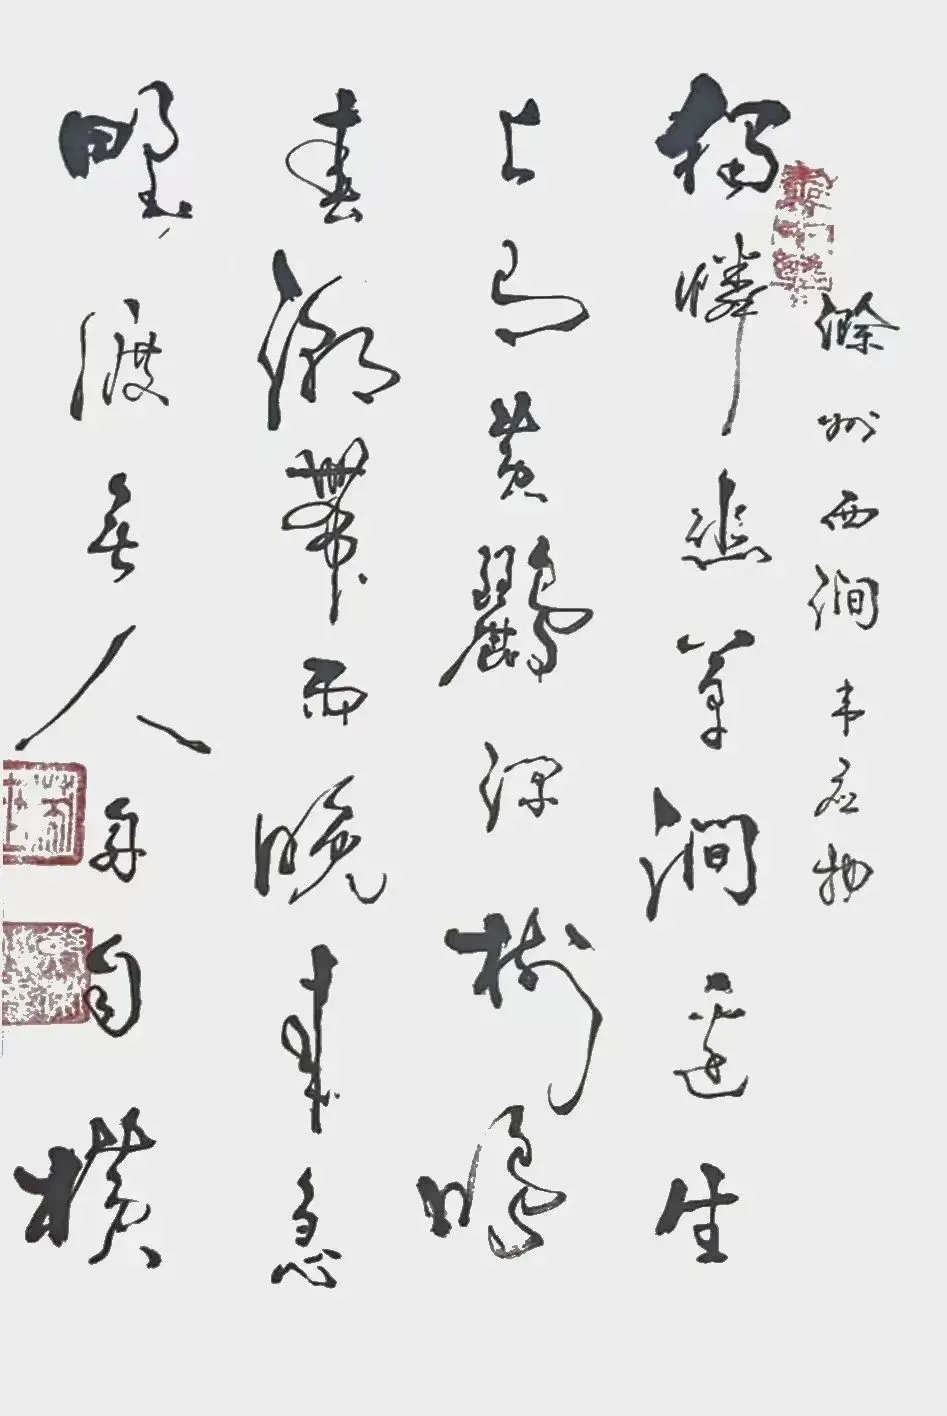 滁州西澗韦应物
獨憐幽草澗邊生
上有黃鸝深樹鳴
春潮帶雨晚来急
野渡無人舟自橫